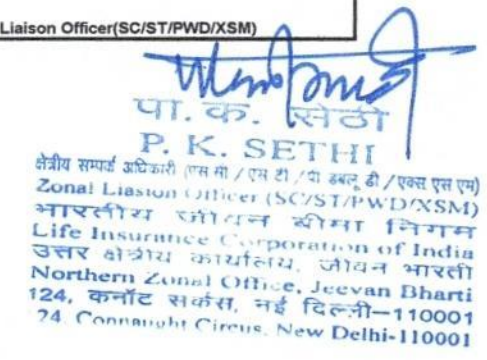 Liaison Officer(SC/ST/PWD/XSM)
पा. क. सेठी
P. K. SETHI
क्षेत्रीय सम्पर्क अधिकारी (एस सी / एस टी / पी डबलू डी / एक्स एस एम)
Zonal Liasion Officer (SC/ST/PWD/XSM)
भारतीय जीवन बीमा निगम
Life Insurance Corporation of India
उत्तर क्षेत्रीय कार्यालय, जीवन भारती
Northern Zonal Office, Jeevan Bharti
124, कनॉट सर्कस, नई दिल्ली-110001
24, Connaught Circus, New Delhi-110001